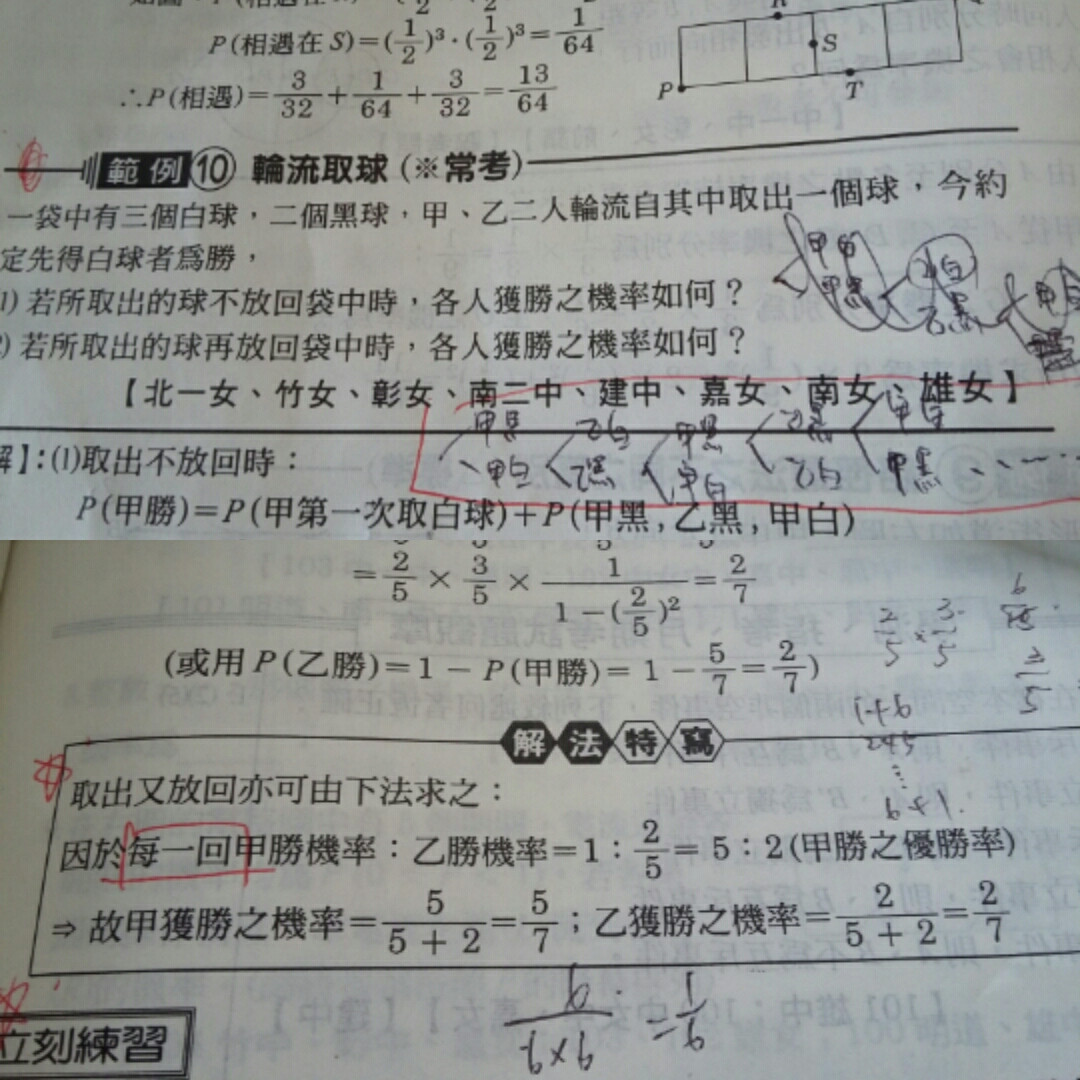 P(相遇在 S)=(1/2)³·(1/2)³=1/64
∴P(相遇)=3/32+1/64+3/32=13/64
P R S T
範例 10 輪流取球(※常考)
一袋中有三個白球，二個黑球，甲、乙二人輪流自其中取出一個球，今約
定先得白球者為勝，
1) 若所取出的球不放回袋中時，各人獲勝之機率如何？
2) 若所取出的球再放回袋中時，各人獲勝之機率如何？
甲白 乙白 甲白
甲黑 乙黑
【北一女、竹女、彰女、南二中、建中、嘉女、南女、雄女】
甲黑 乙白 甲黑 乙黑 甲白
甲白 乙黑 甲白 乙白 甲黑 ……
解】：(1)取出不放回時：
P(甲勝)=P(甲第一次取白球)+P(甲黑，乙黑，甲白)
=2/5×3/5×1/(1-(2/5)²)=2/7
(或用 P(乙勝)=1-P(甲勝)=1-5/7=2/7)
2/5×3/5
3/5
1+6
2+5
⋮
6+1
解法特寫
取出又放回亦可由下法求之：
因於每一回甲勝機率：乙勝機率=1：2/5=5：2(甲勝之優勝率)
⇒ 故甲獲勝之機率=5/(5+2)=5/7；乙獲勝之機率=2/(5+2)=2/7
6/(6×6)=1/6
立刻練習